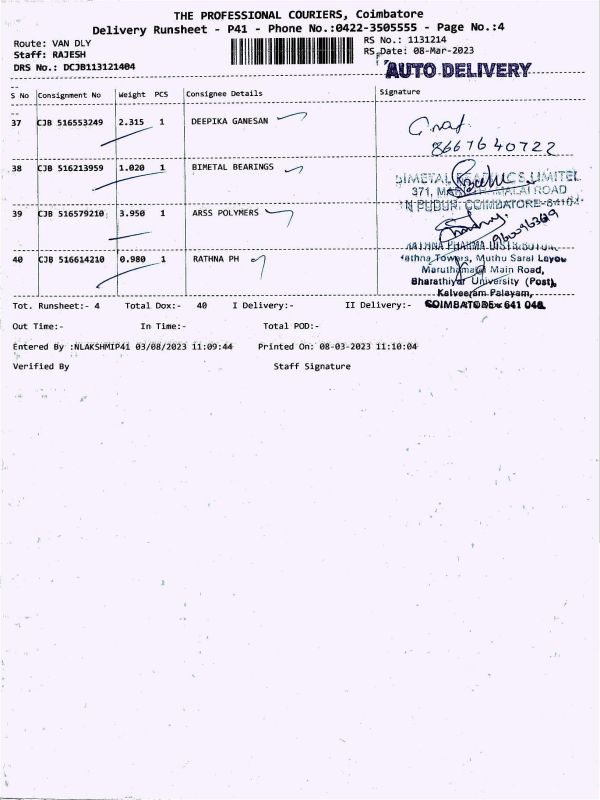 THE PROFESSIONAL COURIERS, Coimbatore
Delivery Runsheet - P41 - Phone No.:0422-3505555 - Page No.:4
Route: VAN DLY RS No.: 1131214
Staff: RAJESH RS Date: 08-Mar-2023
DRS No.: DCJB113121404
AUTO DELIVERY
S No Consignment No Weight PCS Consignee Details Signature
37 CJB 516553249 2.315 1 DEEPIKA GANESAN
8667640722
38 CJB 516213959 1.020 1 BIMETAL BEARINGS
BIMETAL BEARINGS LIMITED
371, ROAD
COIMBATORE-
39 CJB 516579210 3.950 1 ARSS POLYMERS
RATHNA PHARMA DISTRIBUTOR
40 CJB 516614210 0.980 1 RATHNA PH
Rathna Towers, Muthu Sarai Layou
Maruthamalai Main Road,
Bharathiyar University (Post),
Kalveeram Palayam,
COIMBATORE - 641 046
Tot. Runsheet:- 4 Total Dox:- 40 I Delivery:- II Delivery:-
Out Time:- In Time:- Total POD:-
Entered By :NLAKSHMIP41 03/08/2023 11:09:44 Printed On: 08-03-2023 11:10:04
Verified By Staff Signature